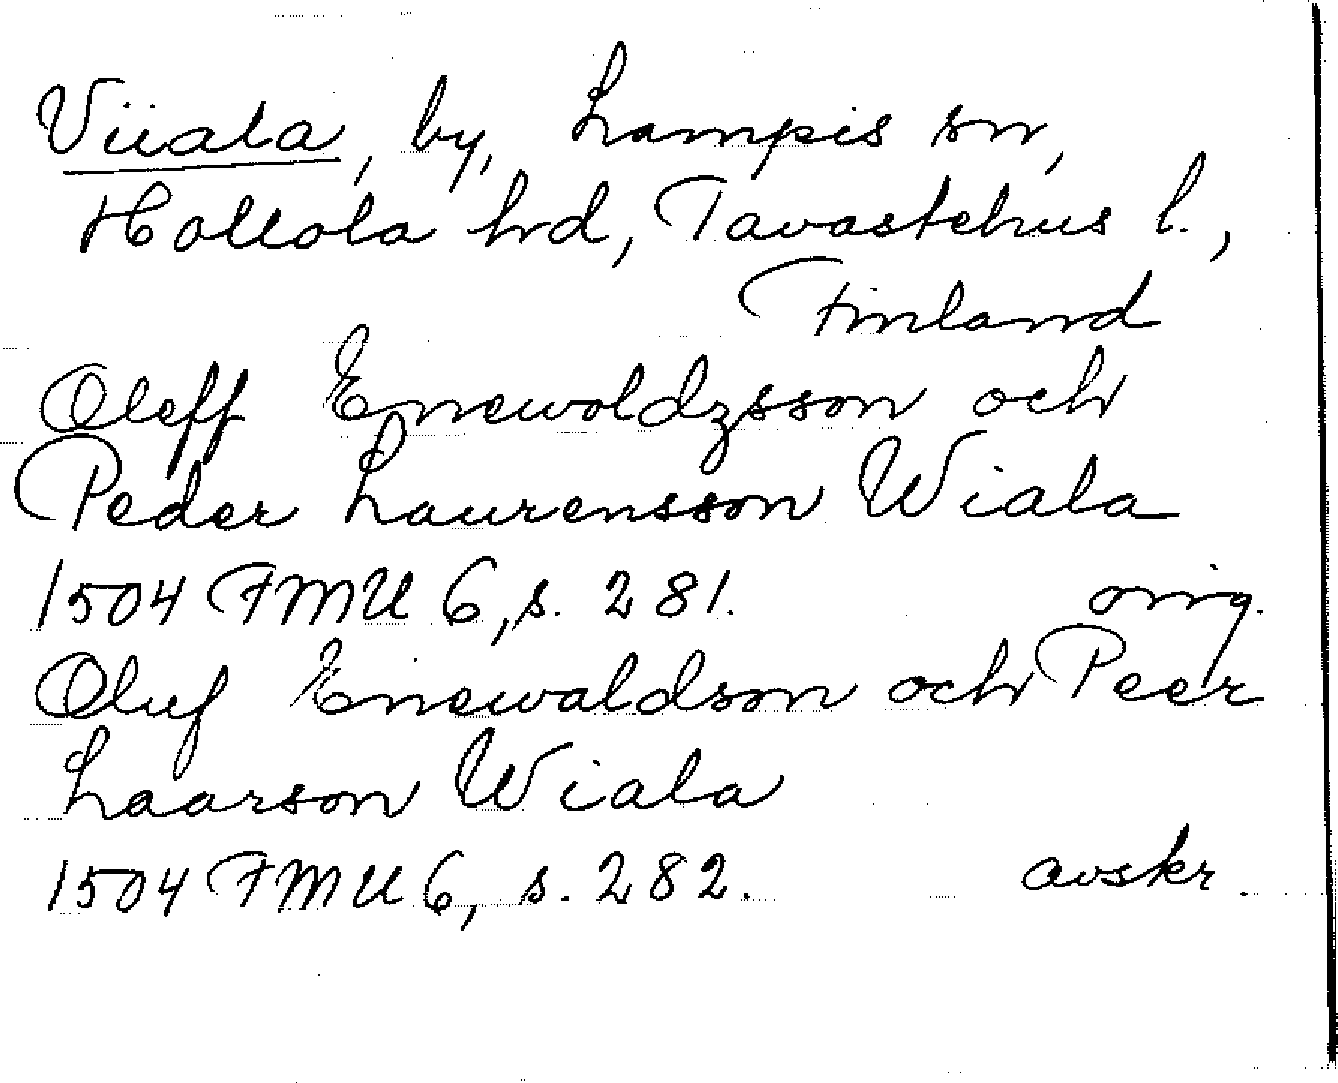 Viiala, by, Lampis sn,
Hollola hrd, Tavastehus l.,
Finland
Oleff Enewoldzsson och
Peder Laurensson Wiala
1504 FMU 6, s. 281. orig.
Oluf Enewaldson och Peer
Laarson Wiala
1504 FMU 6, s. 282. avskr.